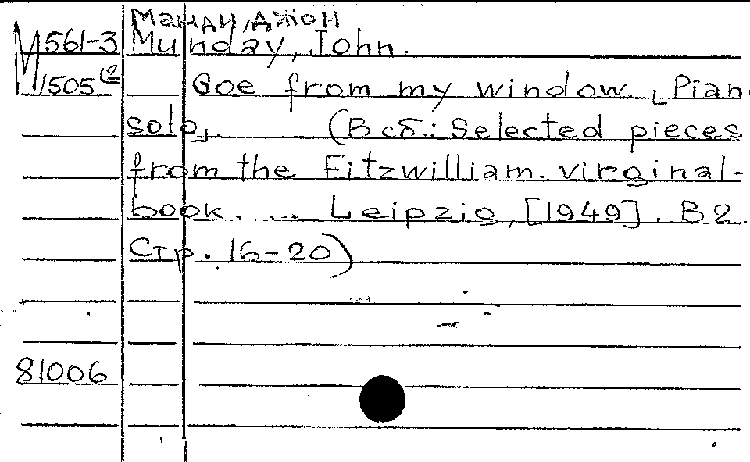 Манди, Джон
М561-3 Munday, John.
1505 Goe from my window. [Pian
solo]. (В сб.: Selected pieces
from the Fitzwilliam virginal-
book. ... Leipzig, [1949]. В 2.
Стр. 16-20)
81006